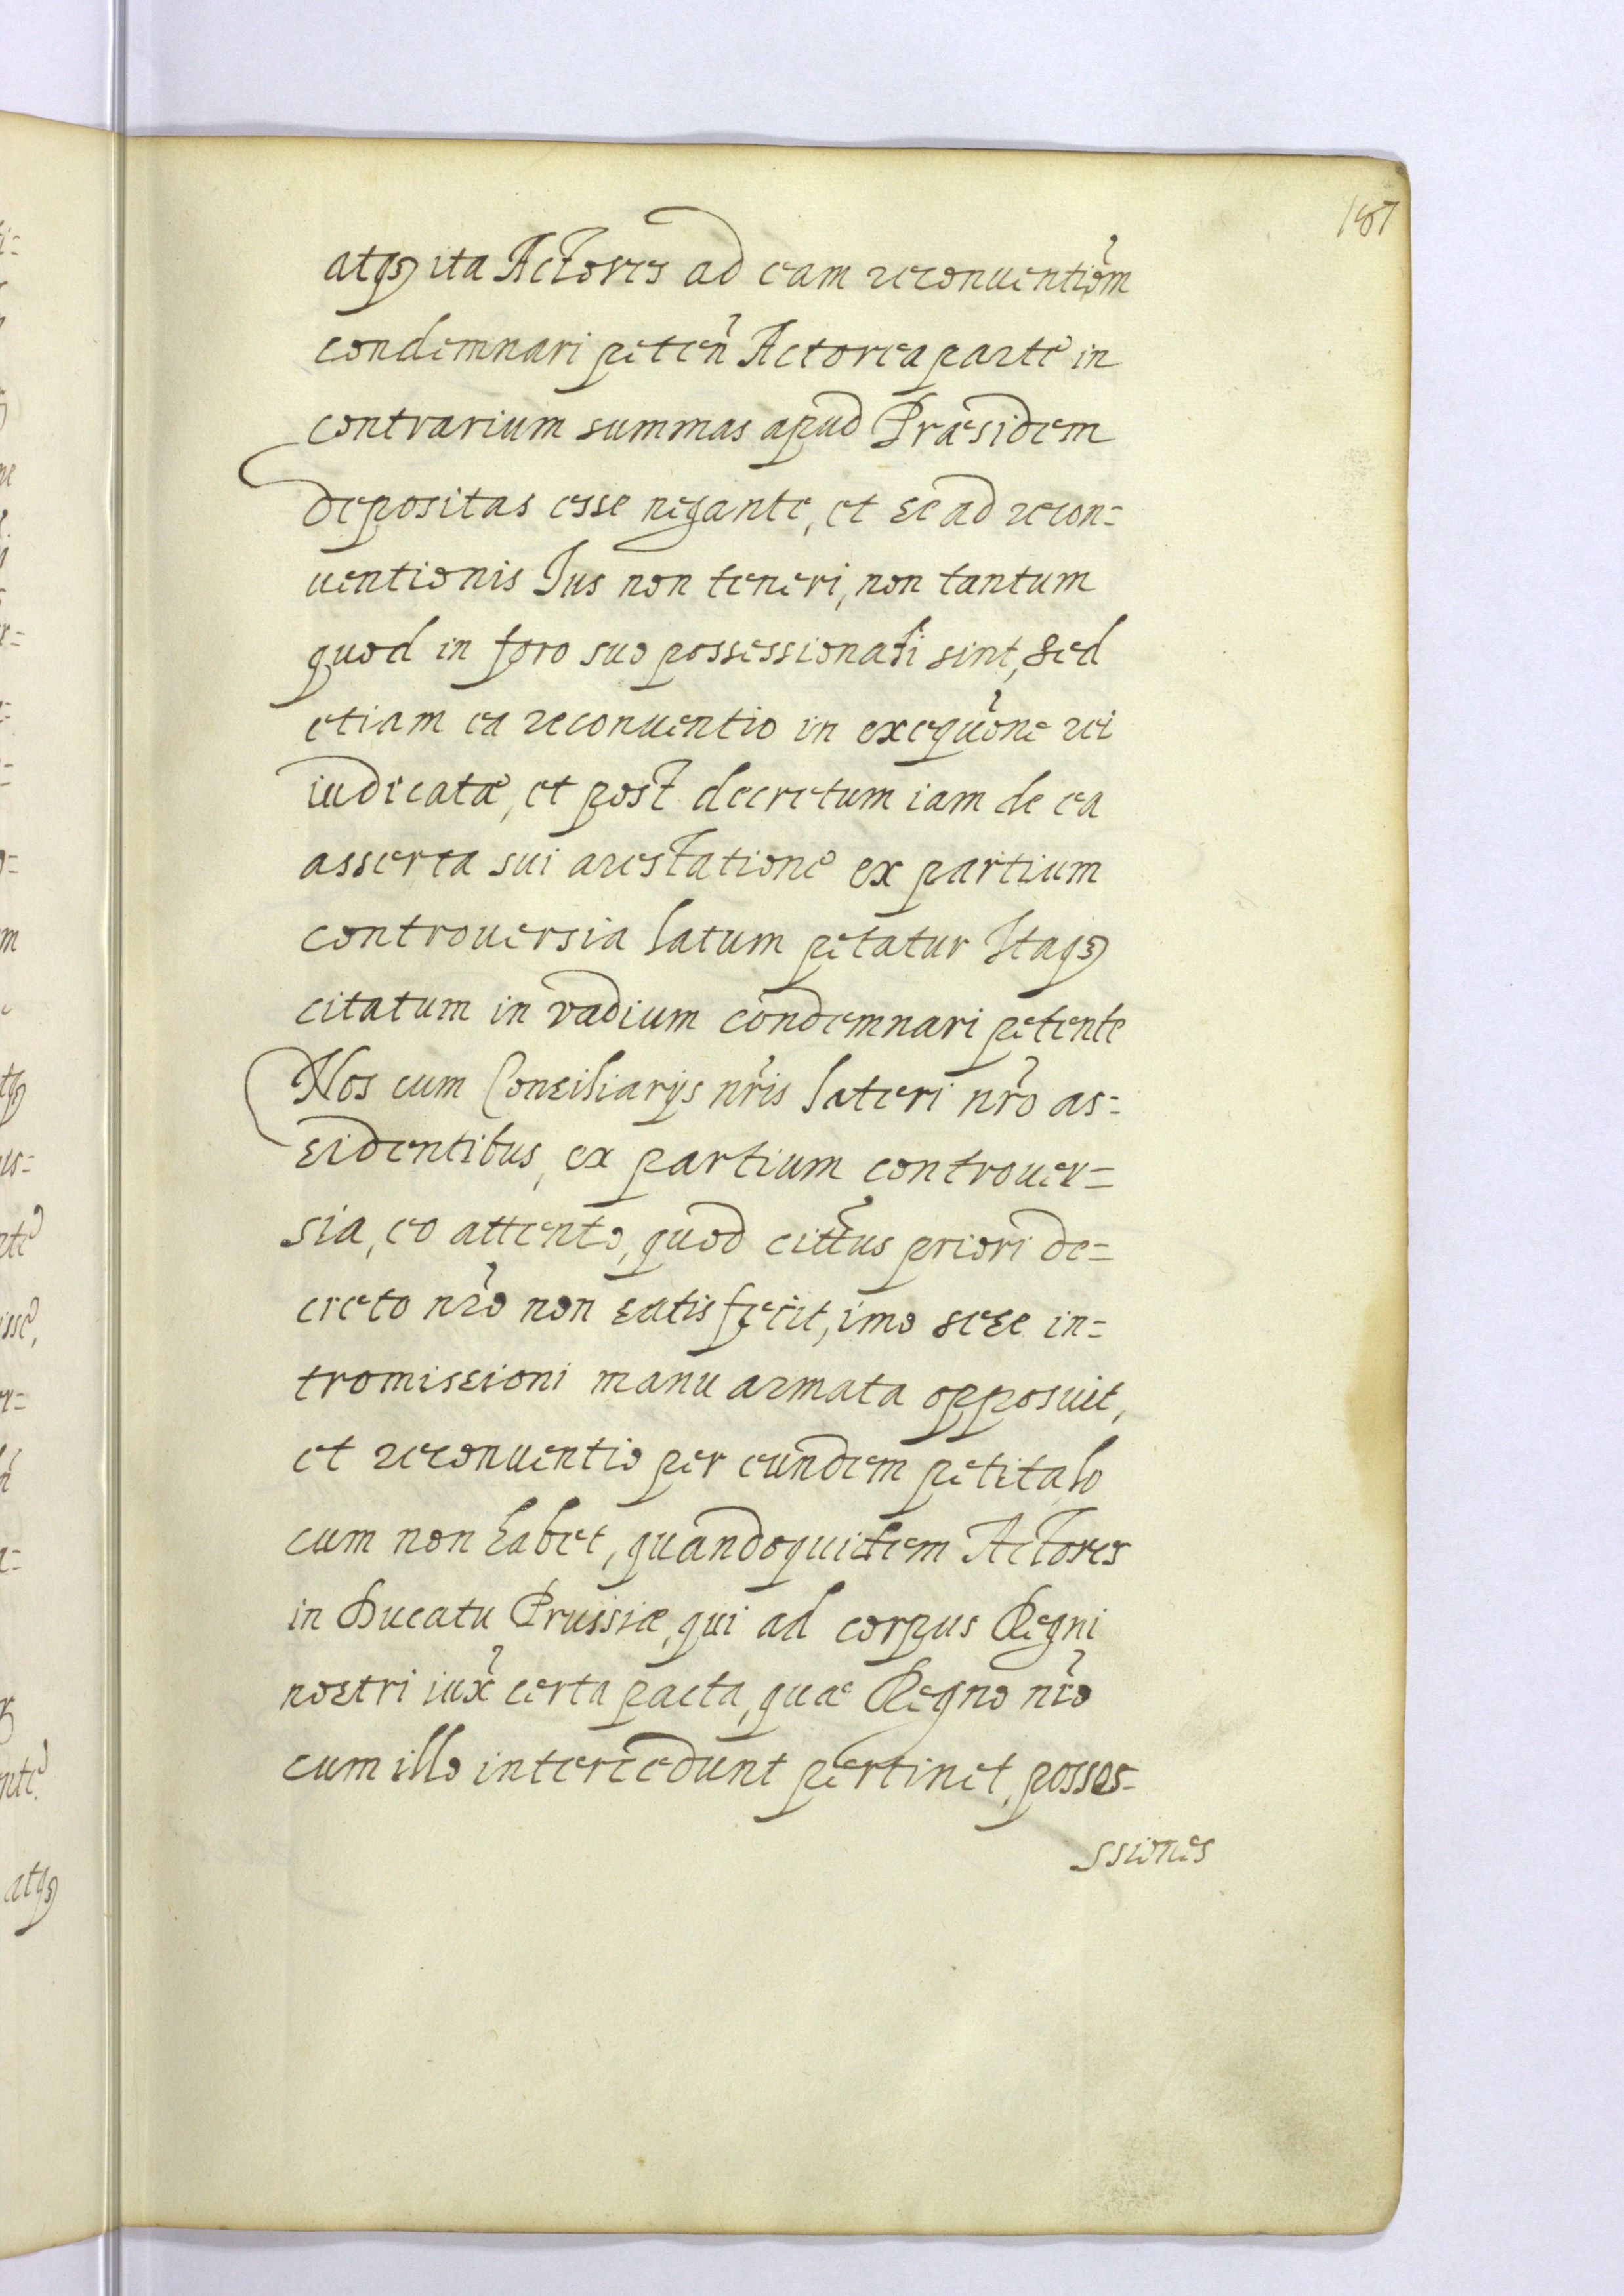 187
atqз ita Actores ad eam reconuentiõm
condemnari peteñ Actorea parte in
contrarium summas apud Præsidem
depositas esse negante, et se ad recon=
uentionis Ius non teneri, non tantum
quod in foro suo possessionati sint, sed
etiam ea reconuentio in exequõne rei
iudicatæ, et post decretum iam de ea
asserta sui arestatione ex partium
controuersia latum petatur Itaqз
citatum in vadium condemnari petente
Nos cum Consiliarijs nr̃is lateri nr̃o as=
sidentibus, ex partium controuer=
sia, eo attento, quod citt̃us priori de=
creto nr̃o non satisfecit, imo sese in=
tromissioni manu armata opposuit,
et reconuentio per eundem petita lo
cum non habet, quandoquidem Actores
in Ducatu Prussiæ, qui ad corpus Regni
nostri iux̃ certa pacta, quae Regno nr̃o
cum illo intercedunt pertinet, posses=
ssiones